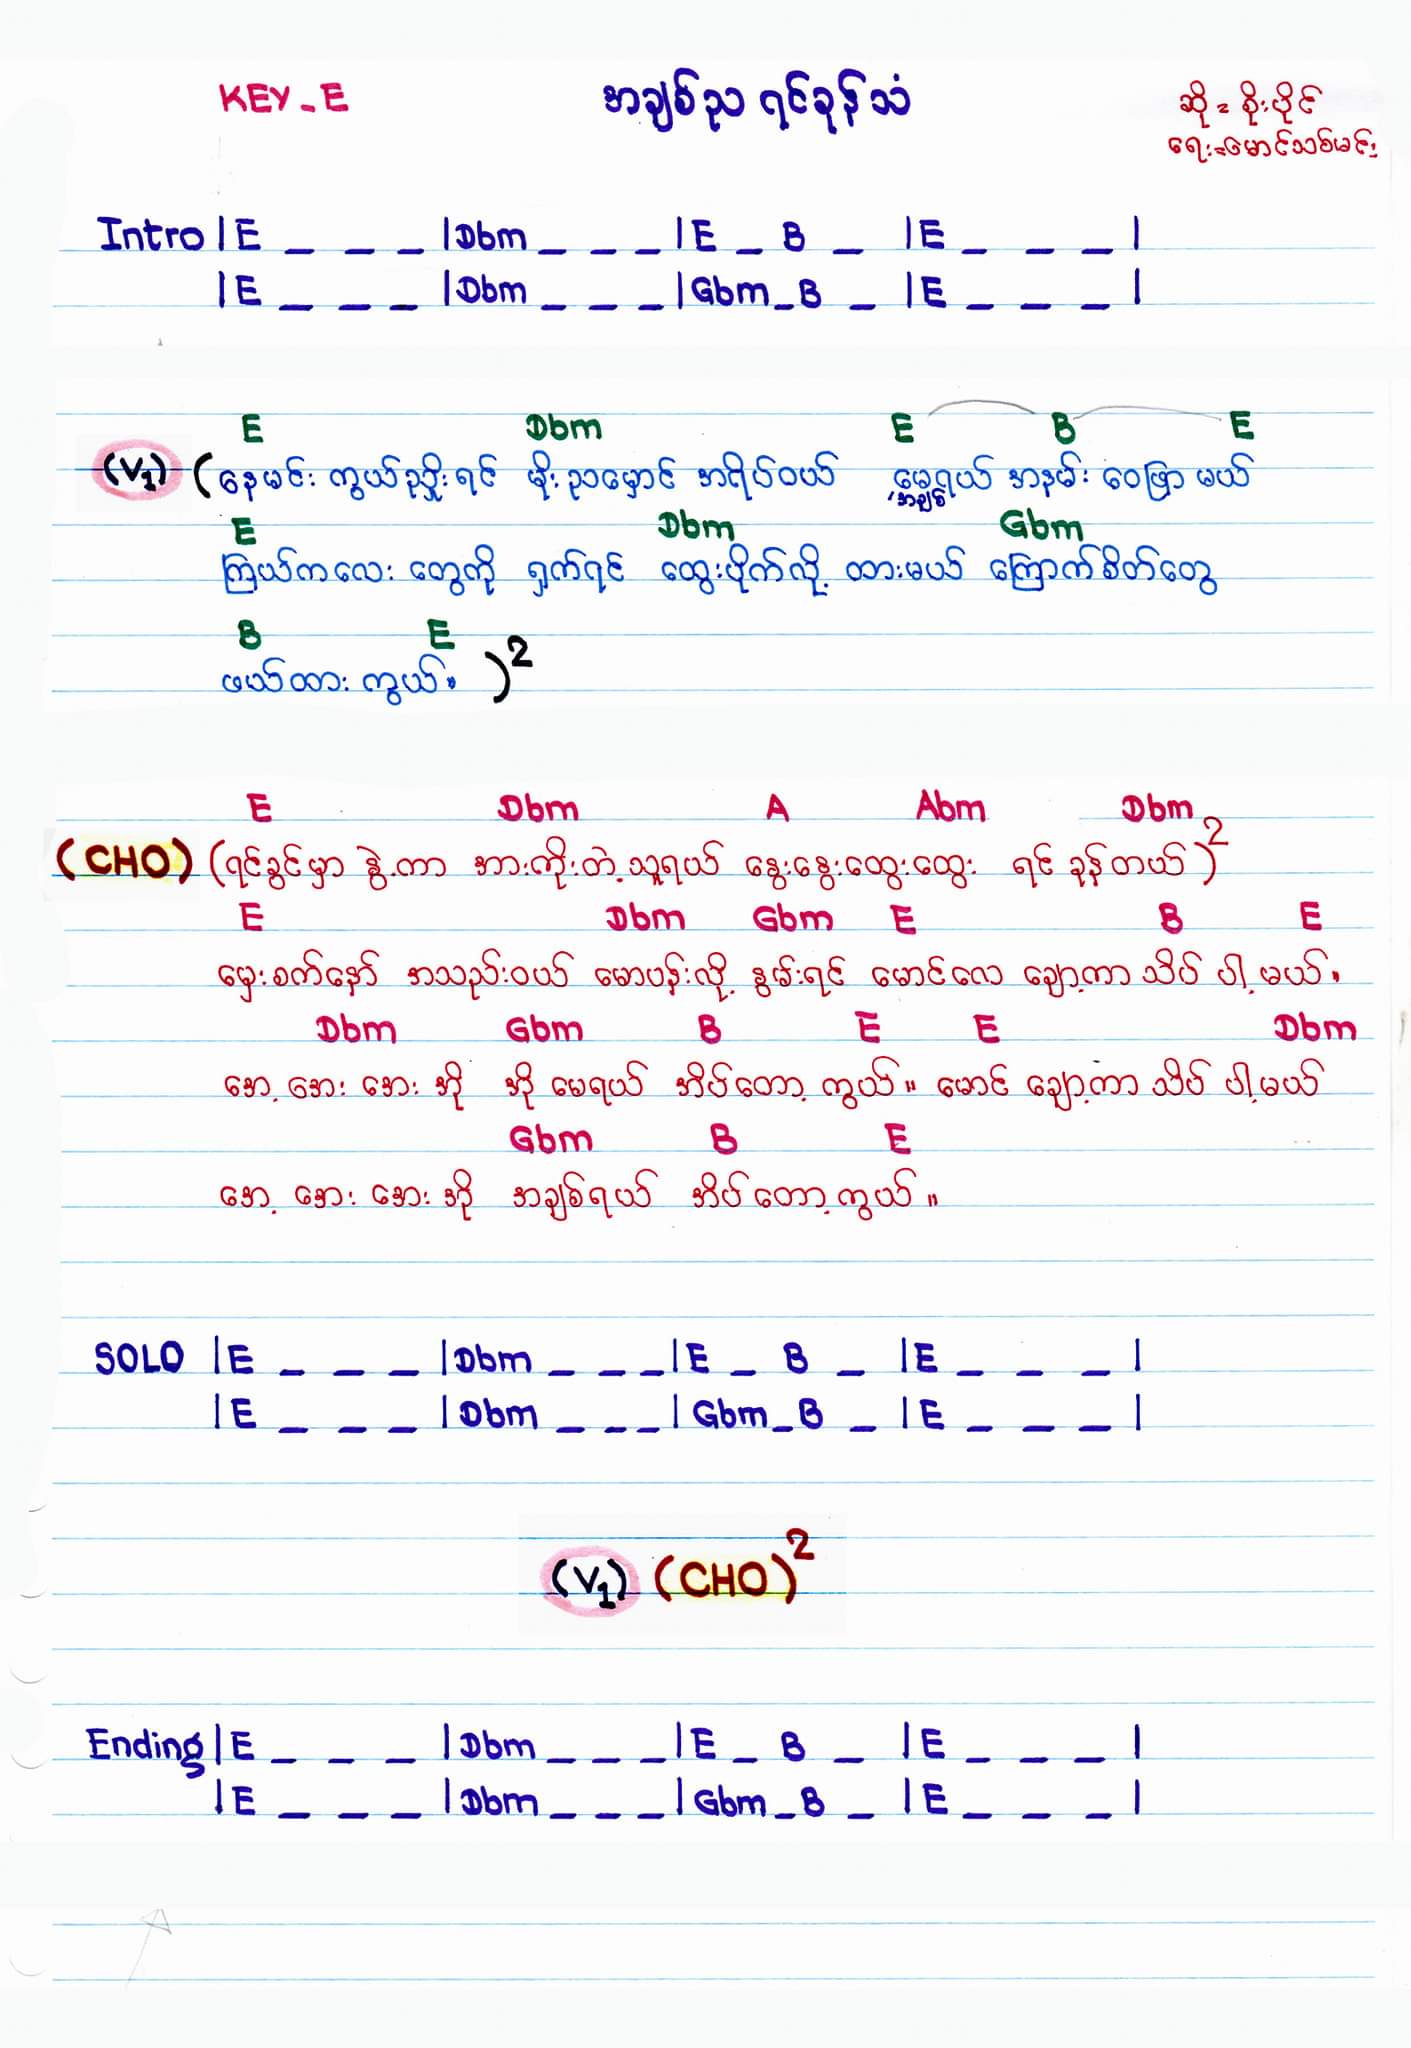 KEY - E
အချစ်ည ရင်ခုန်သံ
ဆို = စိုးပိုင်
ရေး = မောင်သစ်မင်း
Intro |E _ _ _ |Dbm _ _ _ |E _ B _ |E _ _ _ |
|E _ _ _ |Dbm _ _ _ |Gbm _ B _ |E _ _ _ |
E Dbm E B E
(V1) (နေမင်း ကွယ်ညှိုးရင် မိုးညမှောင် အရိပ်ဝယ် မေ့ရယ် အနမ်း ဝေဖြာ မယ်
အချစ်
E Dbm Gbm
ကြယ်ကလေး တွေကို ရှက်ရင် ထွေးပိုက်လို့ ထားမယ် ကြောက်စိတ်တွေ
B E
ဖယ်ထား ကွယ်။ )2
E Dbm A Abm Dbm
(CHO) (ရင်ခွင်မှာ နွဲ့ကာ အားကိုးတဲ့သူရယ် နွေးနွေးထွေးထွေး ရင် ခုန်တယ်)2
E Dbm Gbm E B E
မှေးစက်နော် အသည်းဝယ် မောပန်းလို့ နွမ်းရင် မောင်လေ ချော့ကာ သိပ် ပါ့မယ်။
Dbm Gbm B E E Dbm
အော့ အေး အေး အို အို မေရယ် အိပ်တော့ ကွယ်။ မောင် ချော့ကာ သိပ် ပါ့မယ်
Gbm B E
အော့ အေး အေး အို အချစ်ရယ် အိပ်တော့ကွယ်။
SOLO |E _ _ _ |Dbm _ _ _ |E _ B _ |E _ _ _ |
|E _ _ _ |Dbm _ _ _ |Gbm _ B _ |E _ _ _ |
(V1) (CHO)2
Ending |E _ _ _ |Dbm _ _ _ |E _ B _ |E _ _ _ |
|E _ _ _ |Dbm _ _ _ |Gbm _ B _ |E _ _ _ |